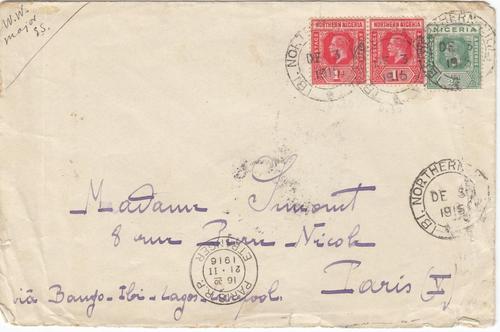 W.W.
major
SS.
NORTHERN NIGERIA
NORTHERN NIGERIA
NIGERIA
IBI. NORTHERN
DE 3
1915
IBI. NORTHERN
DE 3
1915
Madame Simont
8 rue Pierre Nicole
Paris (V)
PARIS
ETRANGER
16
21 - 11
1916
via Banyo-Ibi-Lagos-L'pool.